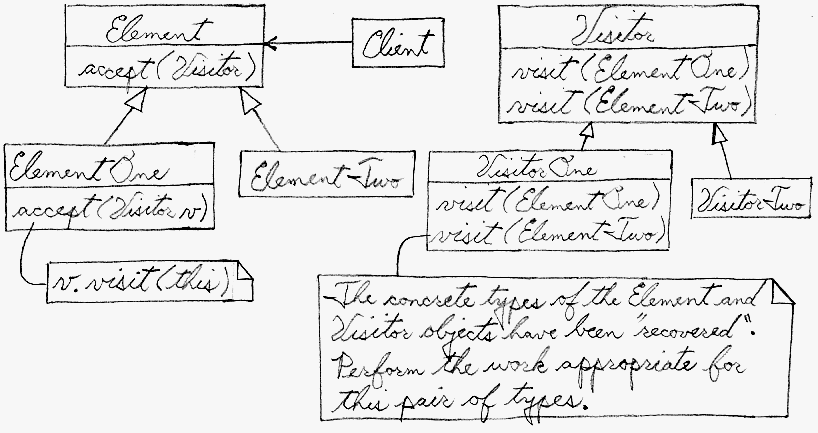 Element
accept(Visitor)
Client
Visitor
visit(Element One)
visit(Element Two)
Element One
accept(Visitor v)
Element Two
Visitor One
visit(Element One)
visit(Element Two)
Visitor Two
v.visit(this)
The concrete types of the Element and
Visitor objects have been "recovered".
Perform the work appropriate for
this pair of types.